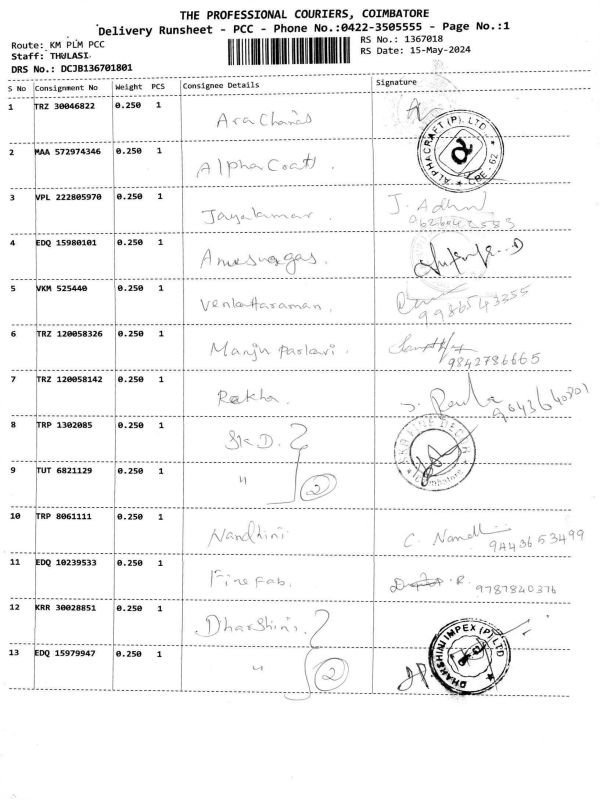 THE PROFESSIONAL COURIERS, COIMBATORE
Delivery Runsheet - PCC - Phone No.:0422-3505555 - Page No.:1
Route: KM PLM PCC
RS No.: 1367018
Staff: THULASI
RS Date: 15-May-2024
DRS No.: DCJB136701801
S No Consignment No Weight PCS Consignee Details Signature
1 TRZ 30046822 0.250 1
2 MAA 572974346 0.250 1 Alpha Coat
ALPHACRAFT (P). LTD CBE - 62
3 VPL 222805970 0.250 1 Jayakumar. J.
4 EDQ 15980101 0.250 1
5 VKM 525440 0.250 1 Venkattaraman. 9986543255
6 TRZ 120058326 0.250 1 Manju 9842786665
7 TRZ 120058142 0.250 1 Rekha.
8 TRP 1302085 0.250 1
9 TUT 6821129 0.250 1 " 2
10 TRP 8061111 0.250 1 Nandhini C. 9443653499
11 EDQ 10239533 0.250 1 Fine fab. R. 9787840376
12 KRR 30028851 0.250 1 Dharshini.
DHARSHINI IMPEX (P) LTD
13 EDQ 15979947 0.250 1 " 2